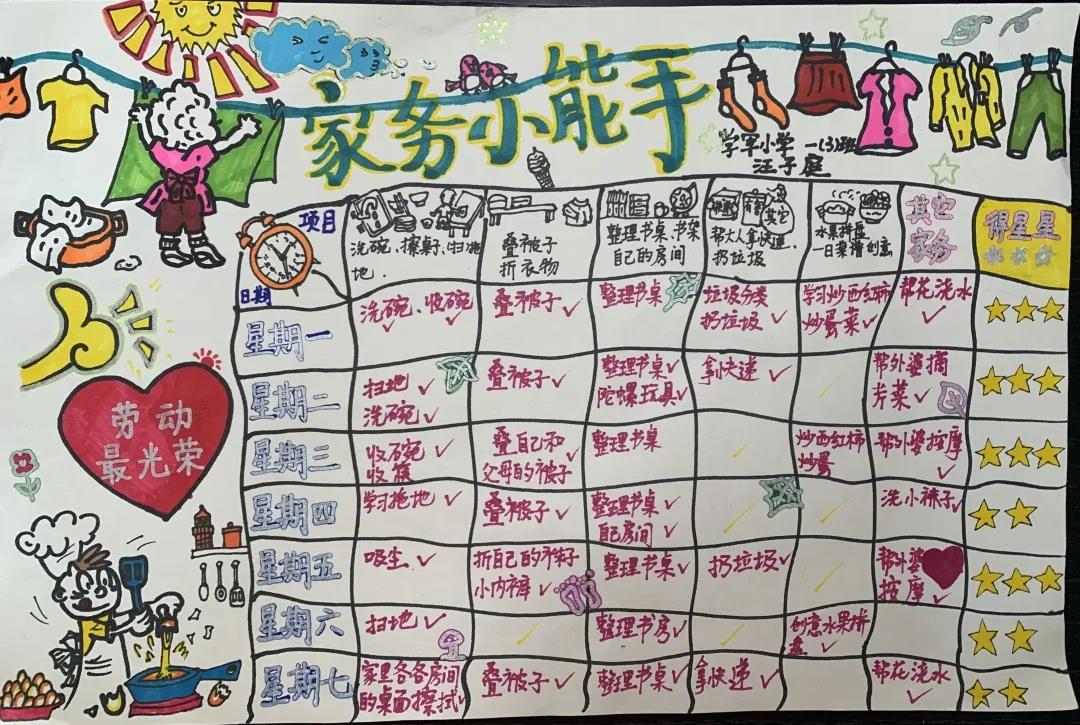 家务小能手
学军小学 一(3)班
汪子庭
项目
日期
洗碗、擦桌子、扫拖
地.
叠被子
折衣物
整理书桌·书架
自己的房间
其它
帮大人拿快递.
扔垃圾
水果拼盘
一日菜谱创意
其它
家务
得星星
星期一
洗碗、收碗
叠被子
整理书桌
垃圾分类
扔垃圾
学习炒西红柿
炒蛋菜
帮花浇水
星期二
扫地
洗碗
叠被子
整理书桌
陀螺玩具
拿快递
帮外婆摘
芹菜
星期三
收碗
收筷
叠自己和
父母的被子
整理书桌
炒西红柿
炒蛋
帮外婆按摩
星期四
学习拖地
叠被子
整理书桌
自己房间
洗小袜子
星期五
吸尘
折自己的裤子
小内裤
整理书桌
扔垃圾
帮外婆
按摩
星期六
扫地
整理书房
创意水果拼
盘
星期七
家里各各房间
的桌面擦拭
叠被子
整理书桌
拿快递
帮花浇水
劳动
最光荣